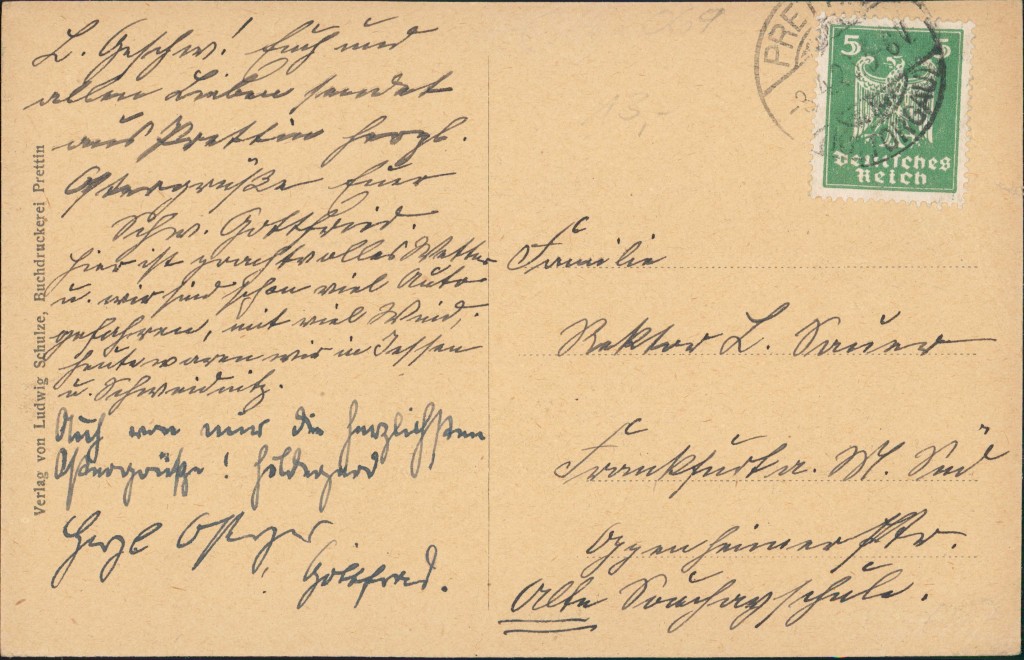 L. Geschw.! Euch und
allen Lieben sendet
aus Prettin herzl.
Ostergrüße Euer
Schw. Gottfried.
hier ist prachtvolles Wetter
u. wir sind schon viel Auto
gefahren, mit viel Wind,
heute waren wir in Jessen
u. Schweidnitz.
Auch von mir die herzlichsten
Ostergrüße! Hildegard
Herzl Ostergr
! Gottfried.
Verlag von Ludwig Schulze, Buchdruckerei Prettin
PRETTIN
TORGAU
5 5
Deutsches
Reich
13,-
Familie
Rektor L. Sauer
Frankfurt a. M. Süd
Oppenheimer Str.
Alte Souchayschule.